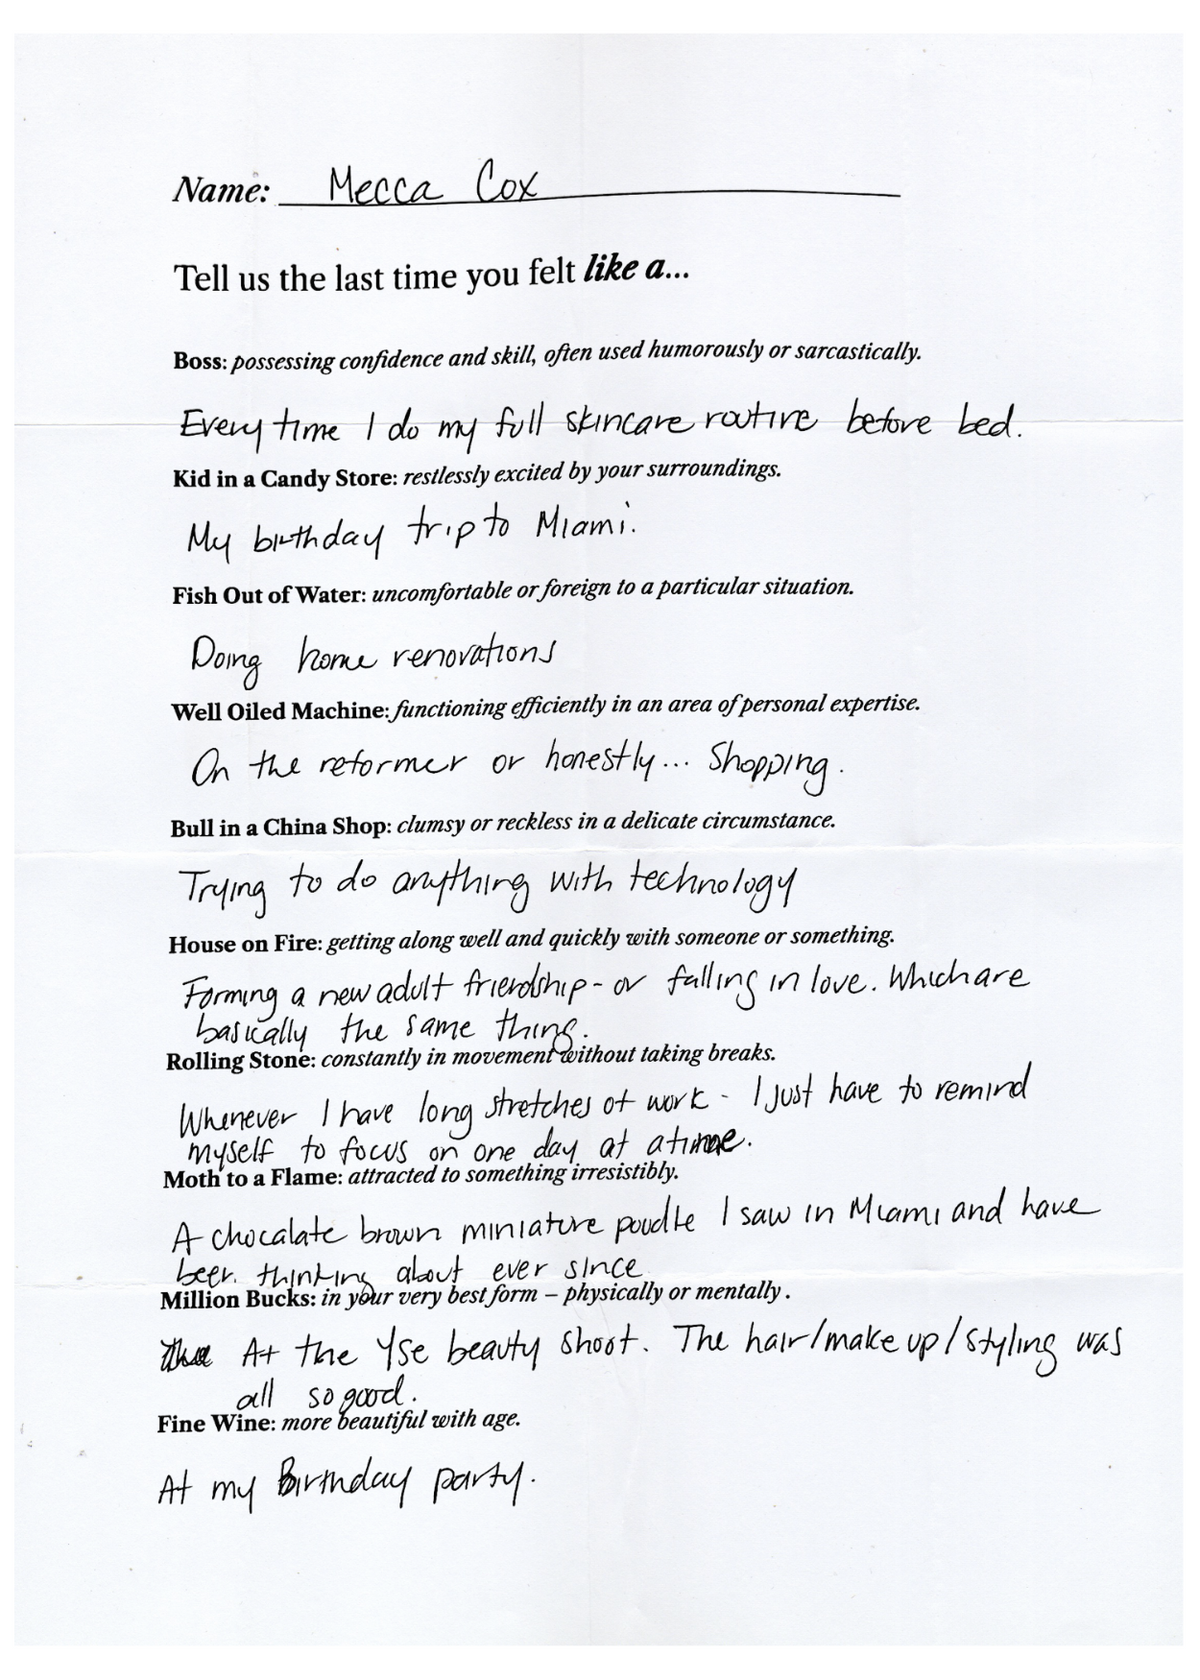 Name: Mecca Cox
Tell us the last time you felt like a...
Boss: possessing confidence and skill, often used humorously or sarcastically.
Every time I do my full skincare routine before bed.
Kid in a Candy Store: restlessly excited by your surroundings.
My birthday trip to Miami.
Fish Out of Water: uncomfortable or foreign to a particular situation.
Doing home renovations
Well Oiled Machine: functioning efficiently in an area of personal expertise.
On the reformer or honestly... Shopping.
Bull in a China Shop: clumsy or reckless in a delicate circumstance.
Trying to do anything with technology
House on Fire: getting along well and quickly with someone or something.
Forming a new adult friendship - or falling in love. Which are
basically the same thing.
Rolling Stone: constantly in movement without taking breaks.
Whenever I have long stretches of work - I just have to remind
myself to focus on one day at a time.
Moth to a Flame: attracted to something irresistibly.
A chocolate brown miniature poodle I saw in Miami and have
been thinking about ever since
Million Bucks: in your very best form – physically or mentally.
At the Yse beauty shoot. The hair/make up/styling was
all so good.
Fine Wine: more beautiful with age.
At my Birthday party.